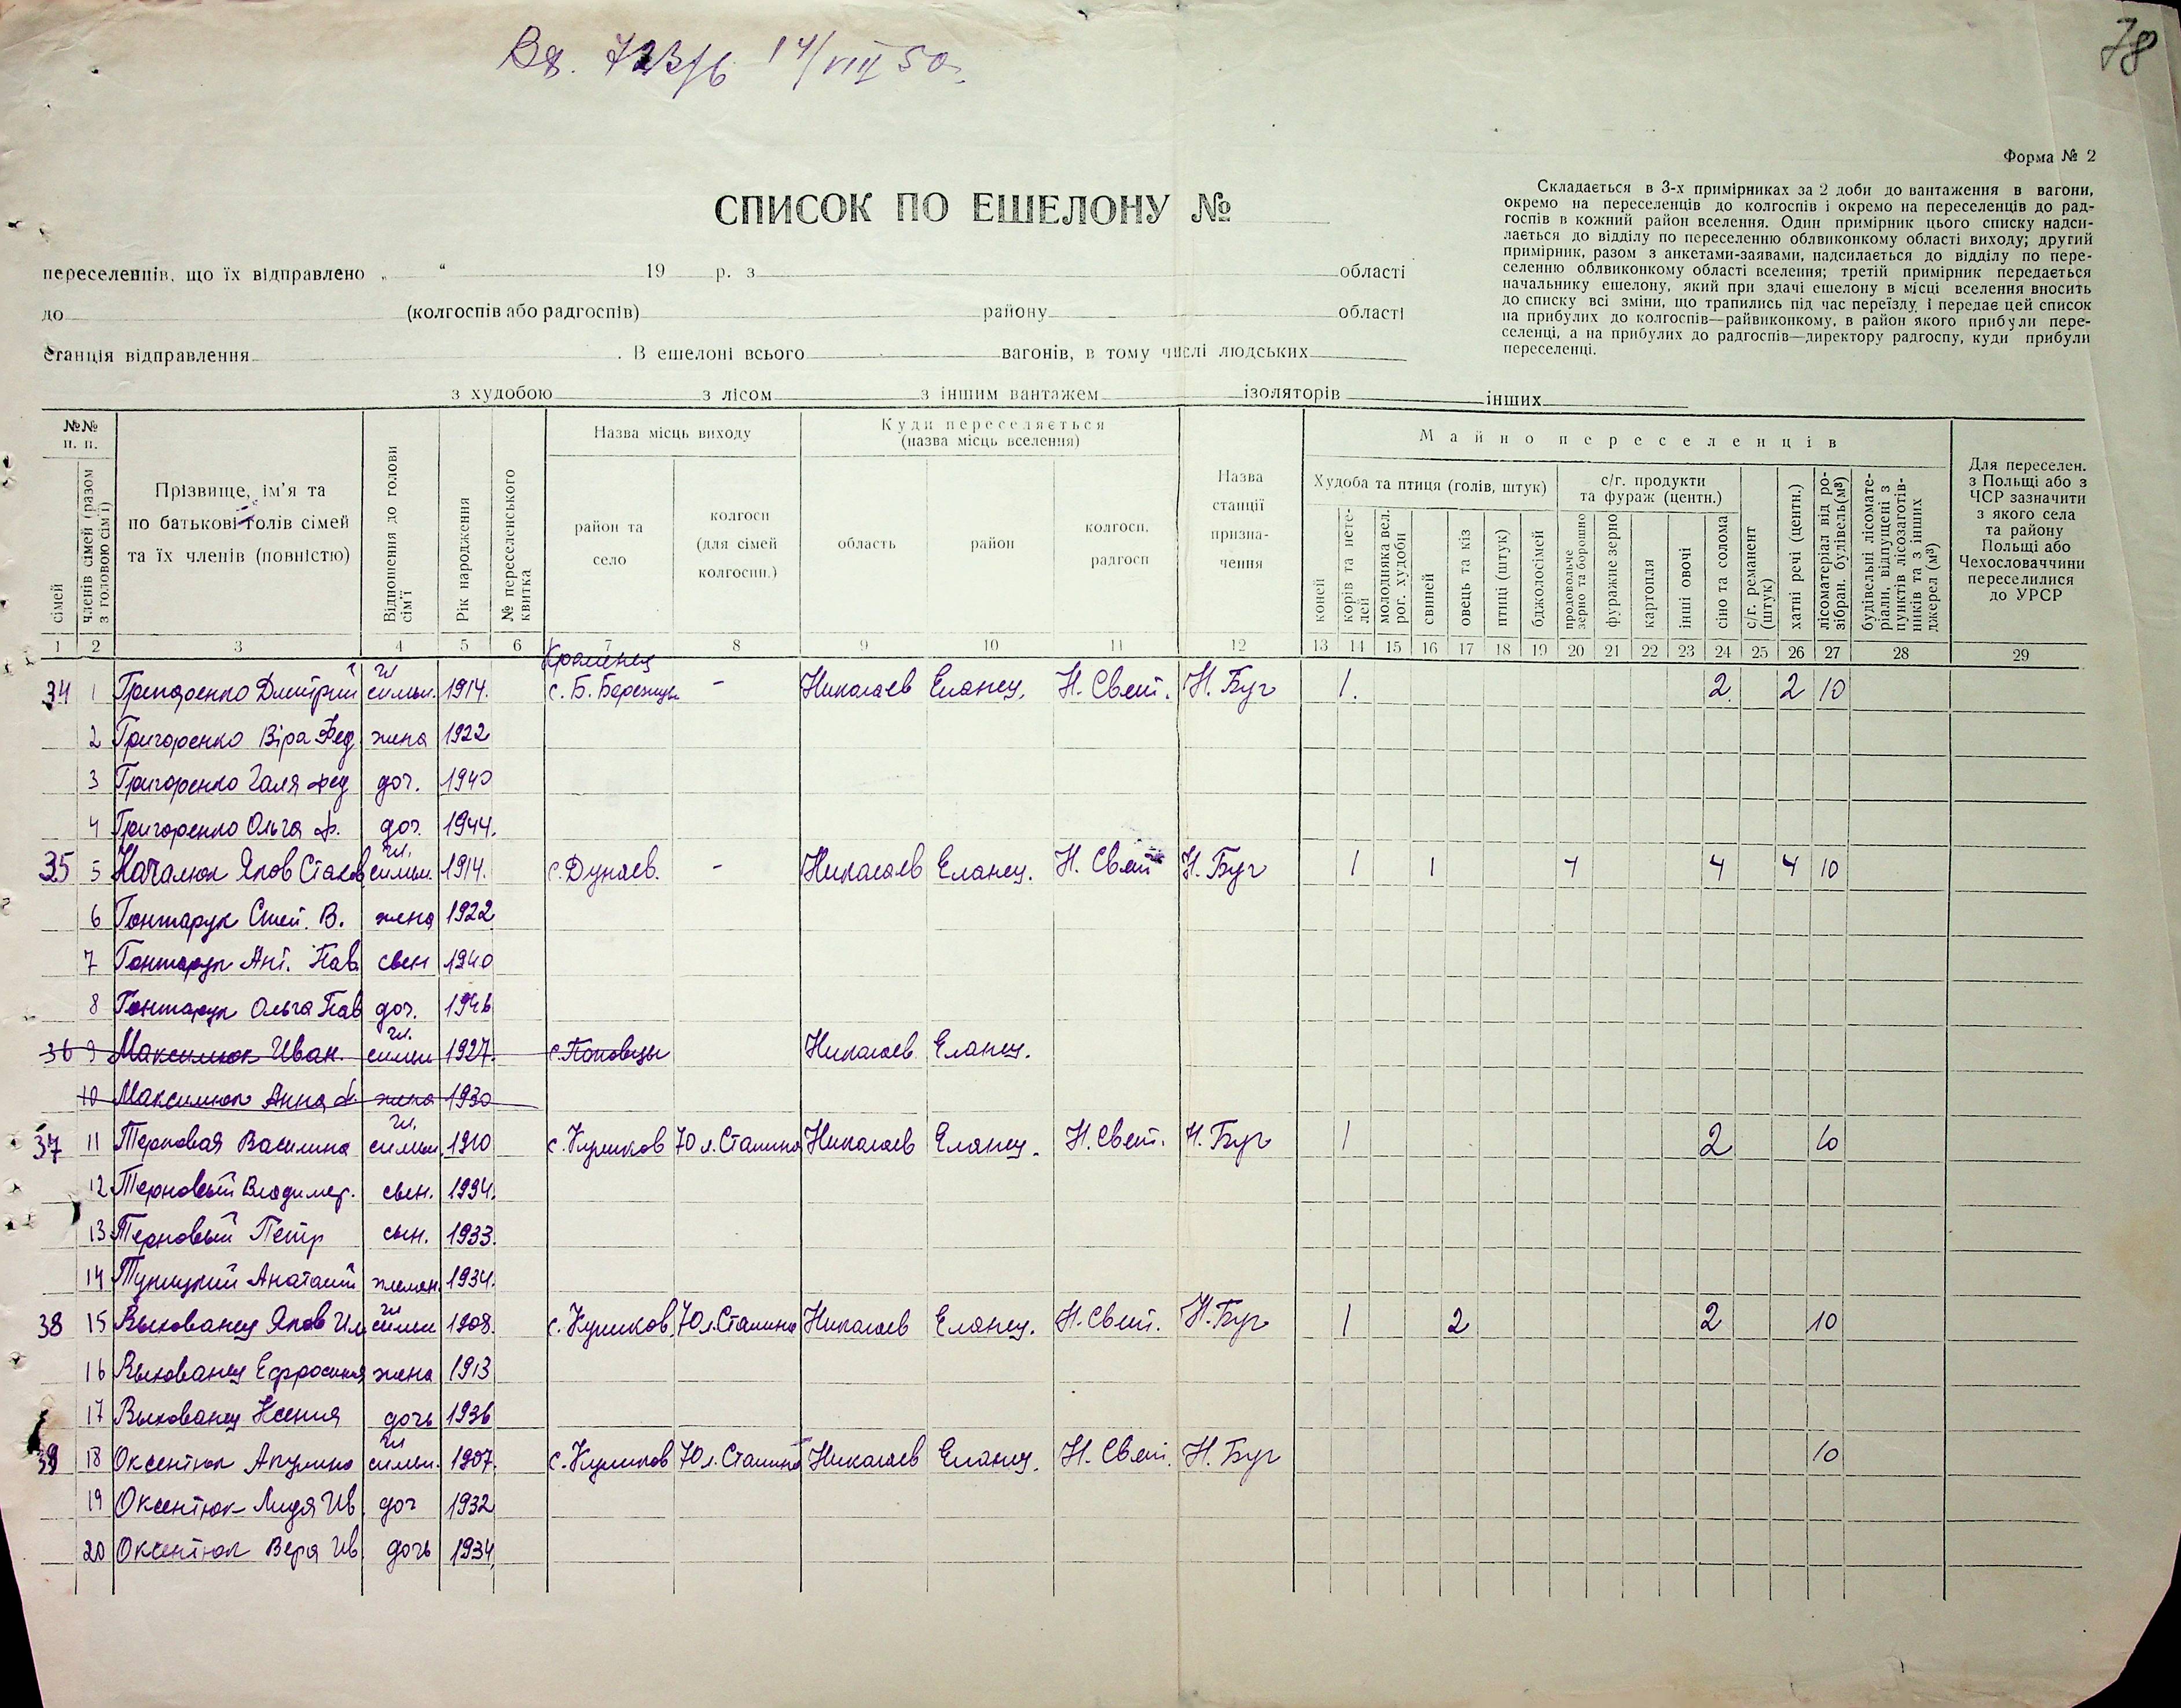 Вх. 723/6 14/VIII 50.
78
Форма № 2
СПИСОК ПО ЕШЕЛОНУ №
Складається в 3-х примірниках за 2 доби до вантаження в вагони,
окремо на переселенців до колгоспів і окремо на переселенців до рад-
госпів в кожний район вселення. Один примірник цього списку надси-
лається до відділу по переселенню облвиконкому області виходу; другий
примірник, разом з анкетами-заявами, надсилається до відділу по пере-
селенню облвиконкому області вселення; третій примірник передається
начальнику ешелону, який при здачі ешелону в місці вселення вносить
до списку всі зміни, що трапились під час переїзду і передає цей список
на прибулих до колгоспів—райвиконкому, в район якого прибули пере-
селенці, а на прибулих до радгоспів—директору радгоспу, куди прибули
переселенці.
переселенців, що їх відправлено „ “ 19 р. з області
до (колгоспів або радгоспів) району області
станція відправлення . В ешелоні всього вагонів, в тому числі людських
з худобою з лісом з іншим вантажем ізоляторів інших
№№ п. п.
сімей
членів сімей (разом з головою сім'ї)
Прізвище, ім'я та
по батькові голів сімей
та їх членів (повністю)
Відношення до голови сім'ї
Рік народження
№ переселенського квитка
Назва місць виходу
район та село
колгосп (для сімей колгоспн.)
Куди переселяється
(назва місць вселення)
область
район
колгосп, радгосп
Назва станції призна-чення
Майно переселенців
Худоба та птиця (голів, штук)
коней
корів та нете-лей
молодняка вел. рог. худоби
свиней
овець та кіз
птиці (штук)
бджолосімей
с/г. продукти та фураж (центн.)
продовольче зерно та борошно
фуражне зерно
картопля
інші овочі
сіно та солома
с/г. реманент (штук)
хатні речі (центн.)
лісоматеріал від ро-зібран. будівель(м³)
будівельні лісомате-ріали, відпущені з пунктів лісозаготів-ників та з інших джерел (м³)
Для переселен.
з Польщі або з
ЧСР зазначити
з якого села
та району
Польщі або
Чехословаччини
переселилися
до УРСР
1 2 3 4 5 6 7 8 9 10 11 12 13 14 15 16 17 18 19 20 21 22 23 24 25 26 27 28 29
Кременец
34 1 Григоренко Дмитрий гл семьи. 1914. с. Б. Бережцы - Николаев Еланец. Н. Свет. Н. Буг 1. 2 2 10
2 Григоренко Віра Фед жена 1922
3 Григоренко Галя Фед доч. 1940
4 Григоренко Ольга Ф. доч. 1944.
35 5 Качалюк Яков гл. семьи. 1914. с. Дунаев. - Николаев Еланец. Н. Свет Н. Буг 1 1 4 4 10
6 Гонтарук Степ. В. жена 1922
7 Гонтарук Ант. Пав сын 1940
8 Гонтарук Ольга Пав доч. 1946
36 9 Максимюк Иван. гл. семьи 1927. с. Поповцы Николаев Еланец.
10 Максимюк Анна жена 1930
37 11 Терновая Василина гл. семьи. 1910 с. Куликов Николаев Еланец. Н. Свет. Н. Буг 1 2 10
12 Терновый Владимер. сын.
13 Терновый Петр сын. 1933.
14 Анатолий 1934.
38 15 Выхованец Яков Ил гл семьи 1908. с. Куликов Николаев Еланец. Н. Свет. Н. Буг 1 2 2 10
16 Выхованец Ефросиния жена 1913
17 Выхованец Ксения дочь 1936
39 18 Оксентюк Акулина гл семьи. 1907. с. Куликов Николаев Еланец. Н. Свет. Н. Буг 10
19 Оксентюк Лидя Ив. доч 1932
20 Оксентюк Вера Ив. дочь 1934